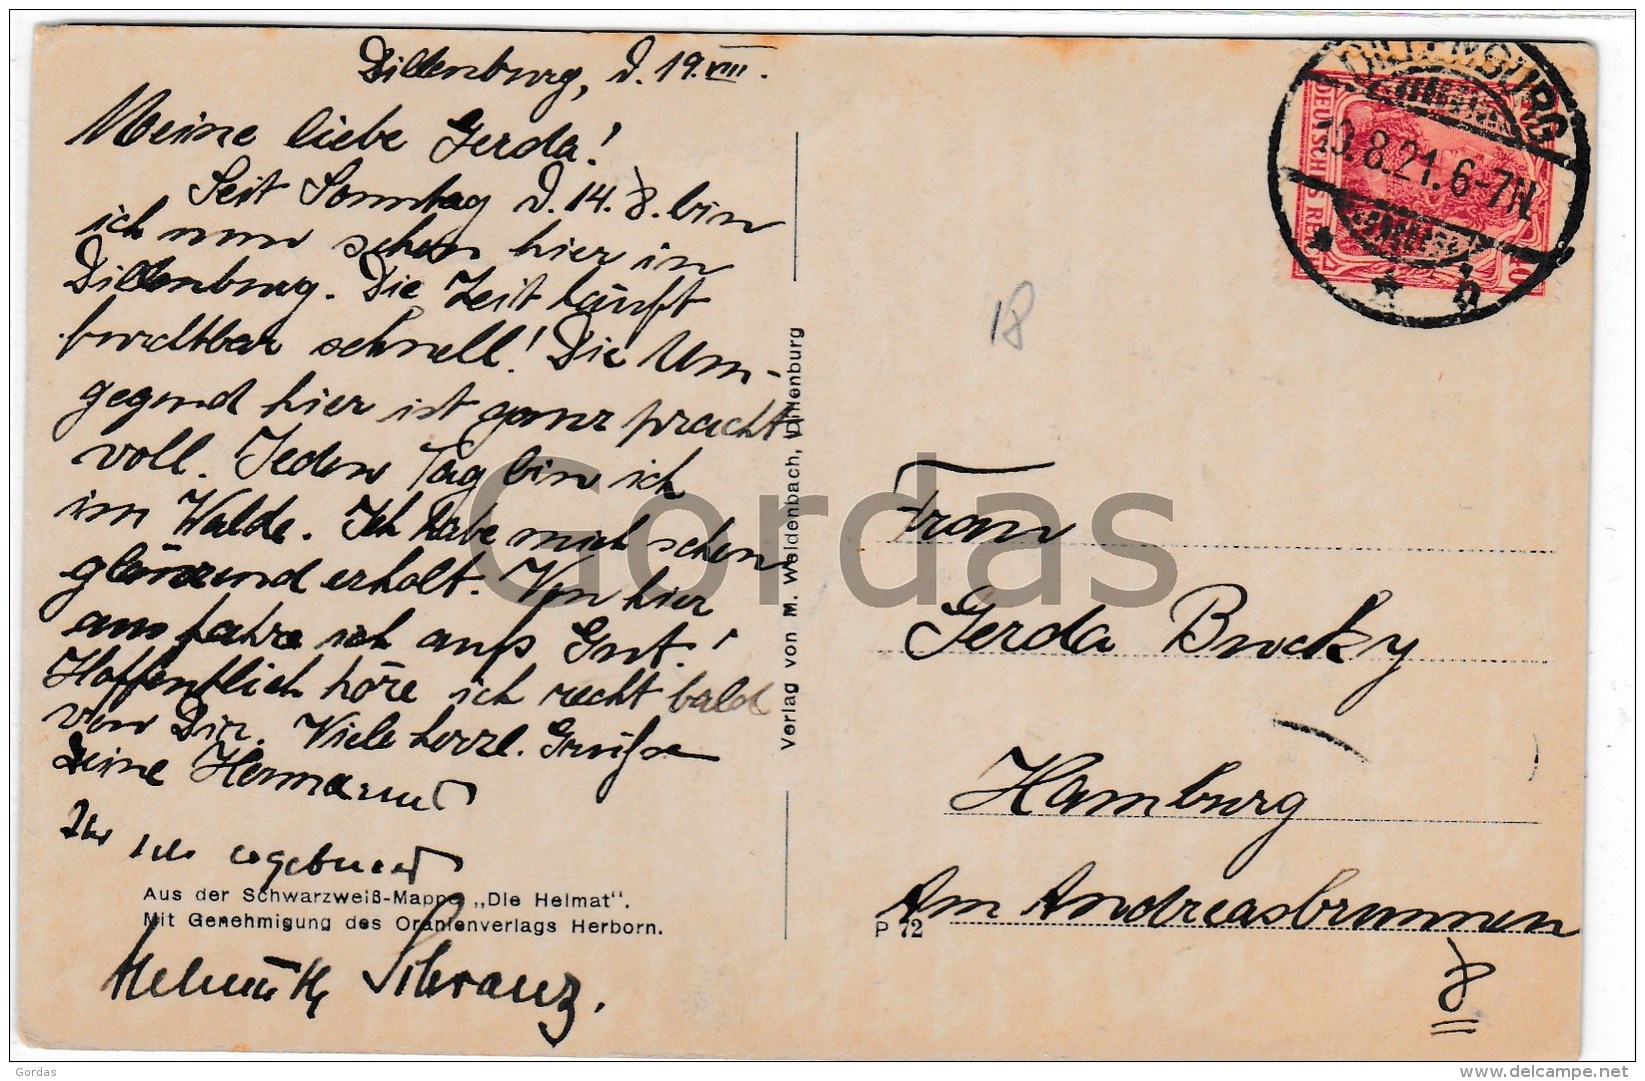 Dillenburg, d. 19. VIII.
Meine liebe Gerda!
Seit Sonntag d. 14. 8. bin
ich nun schon hier in
Dillenburg. Die Zeit läuft
furchtbar schnell! Die Um-
gegend hier ist ganz pracht-
voll. Jeden Tag bin ich
im Walde. Ich habe mich schon
glänzend erholt. Von hier
aus fahre ich aufs Gut!
Hoffentlich höre ich recht bald
von Dir. Viele herzl. Grüße
Deine Hermann
Ihr ergebener
Aus der Schwarzweiß-Mappe „Die Heimat“.
Mit Genehmigung des Oranienverlags Herborn.
Helmuth Schranz.
Verlag von M. Weidenbach, Dillenburg
DILLENBURG
19.8.21.6-7N.
* * b
DEUTSCHES REICH
10
18
Frau
Gerda Brucky
Hamburg
Am Andreasbrunnen
P 72
8
Gordas
Gordas
delcampe.net